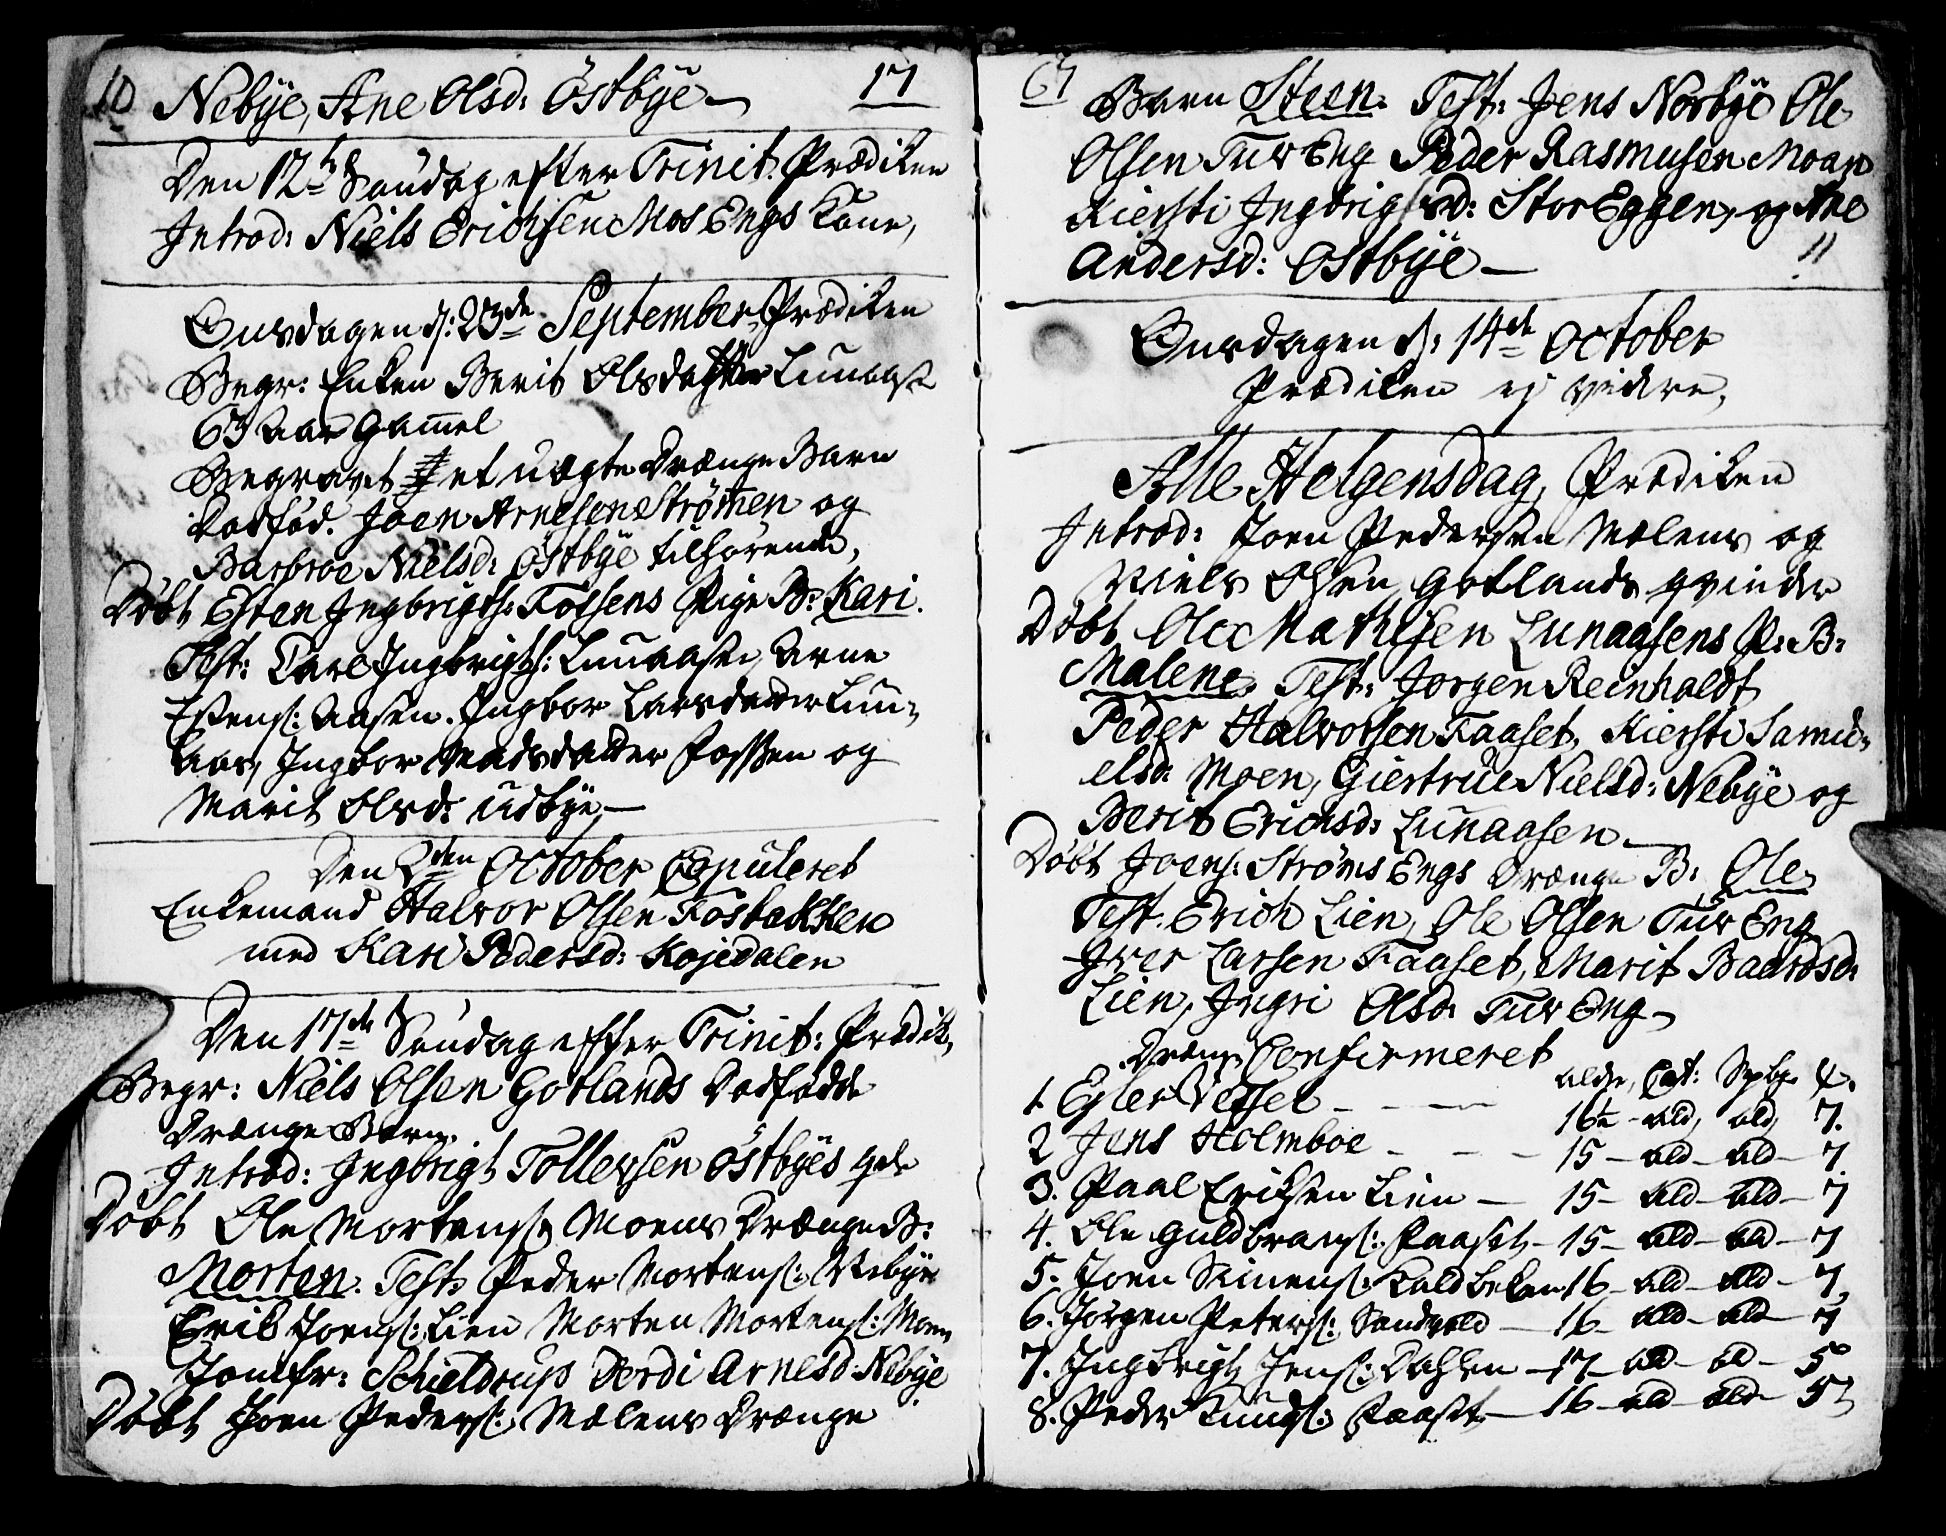 10 Nebÿe, Ane Olsd: Östbÿe 17
Den 12te Söndag efter Trinit: Prædiken
Introd: Niels Erichsen Mos Engs Kone,
Onsdagen d: 23de September, Prædiken
Begr: Enken Berit Olsdatter Lunaas
63 Aar Gam̄el
Begravet et uægte Drænge Barn
Dødfød. Joen Arnesen Strøm̄en og
Barbroe Nielsd: Östbÿe tilhørende,
Døbt Esten Ingbrigts: Fossens Pige B: Kari.
Test: Carl Ingbrigts: Lunaasen, Arne
Estens: Aasen. Ingbor Larsdatter Lun-
aas, Ingbor Madsdatter Fossen og
Marit Olsd: Udbÿe,
Den 2den October Copuleret
Enkemand Halvor Olsen Fosbakken
med Kari Pedersd: Kojedalen
Den 17de Söndag efter Trinit: Prædik,
Begr: Niels Olsen Gotlands Dødfødde
Drænge Barn.
Introd: Ingbrigt Tollevsen Östbÿes
Døbt Ole Mortens: Moens Drænge B:
Morten. Test: Peder Mortens: Nebÿe
Erik Joens: Lien Morten Mortens: Moen
Jomfr: Schieldrups Dordi Arnesd: Nebÿe
Døbt Joen Peders: Mælens Drænge
67
Barn Steen. Test: Jens Norbÿe Ole
Olsen Tuv Eng Peder Rasmusen Moan
Kiersti Ingbrigtsd: Stor Eggen, og Ane
Andersd: Ostbÿe 11
Onsdagen d: 14de October
Prædiken ej videre,
Alle Helgensdag, Prædiken
Introd: Joen Pedersen Mælens og
Niels Olsen Gotlands qvinder
Døbt Ole Mathisen Lunaasens P: B:
Malene. Test: Jorgen Reinholdt,
Peder Halvorsen Faaset, Kiersti Samu-
elsd: Moen, Giertrue Nielsd: Nebÿe og
Berit Erichsd: Lunaasen.
Døbt Joens: Strøms Engs Drænge B: Ole,
Test. Erich Lien, Ole Olsen Tuv Eng
Iver Larsen Faaset, Marit Baardsd:
Lien, Ingri Olsd: Tuv Eng
Drænge Confirmeret
Alder, Cat: &.
1 Eiler Vessel 16½ - ald, ald, 7.
2 Jens Holmboe 15 - ald - ald - 7
3. Paal Erichsen Lien 15 - ald - ald - 7
4. Ole Guldbrans: Faaset 15 - ald - ald - 7
5. Joen Simens: Koldbeken 16 - ald - ald - 7,
6. Jörgen Peters: Sandvold 16 - ald - ald - 7
7. Ingbrigt Jens: Dahlen 17 - ald - ald - 5
8. Peder Knuds: Faaset 16 - ald - ald 5